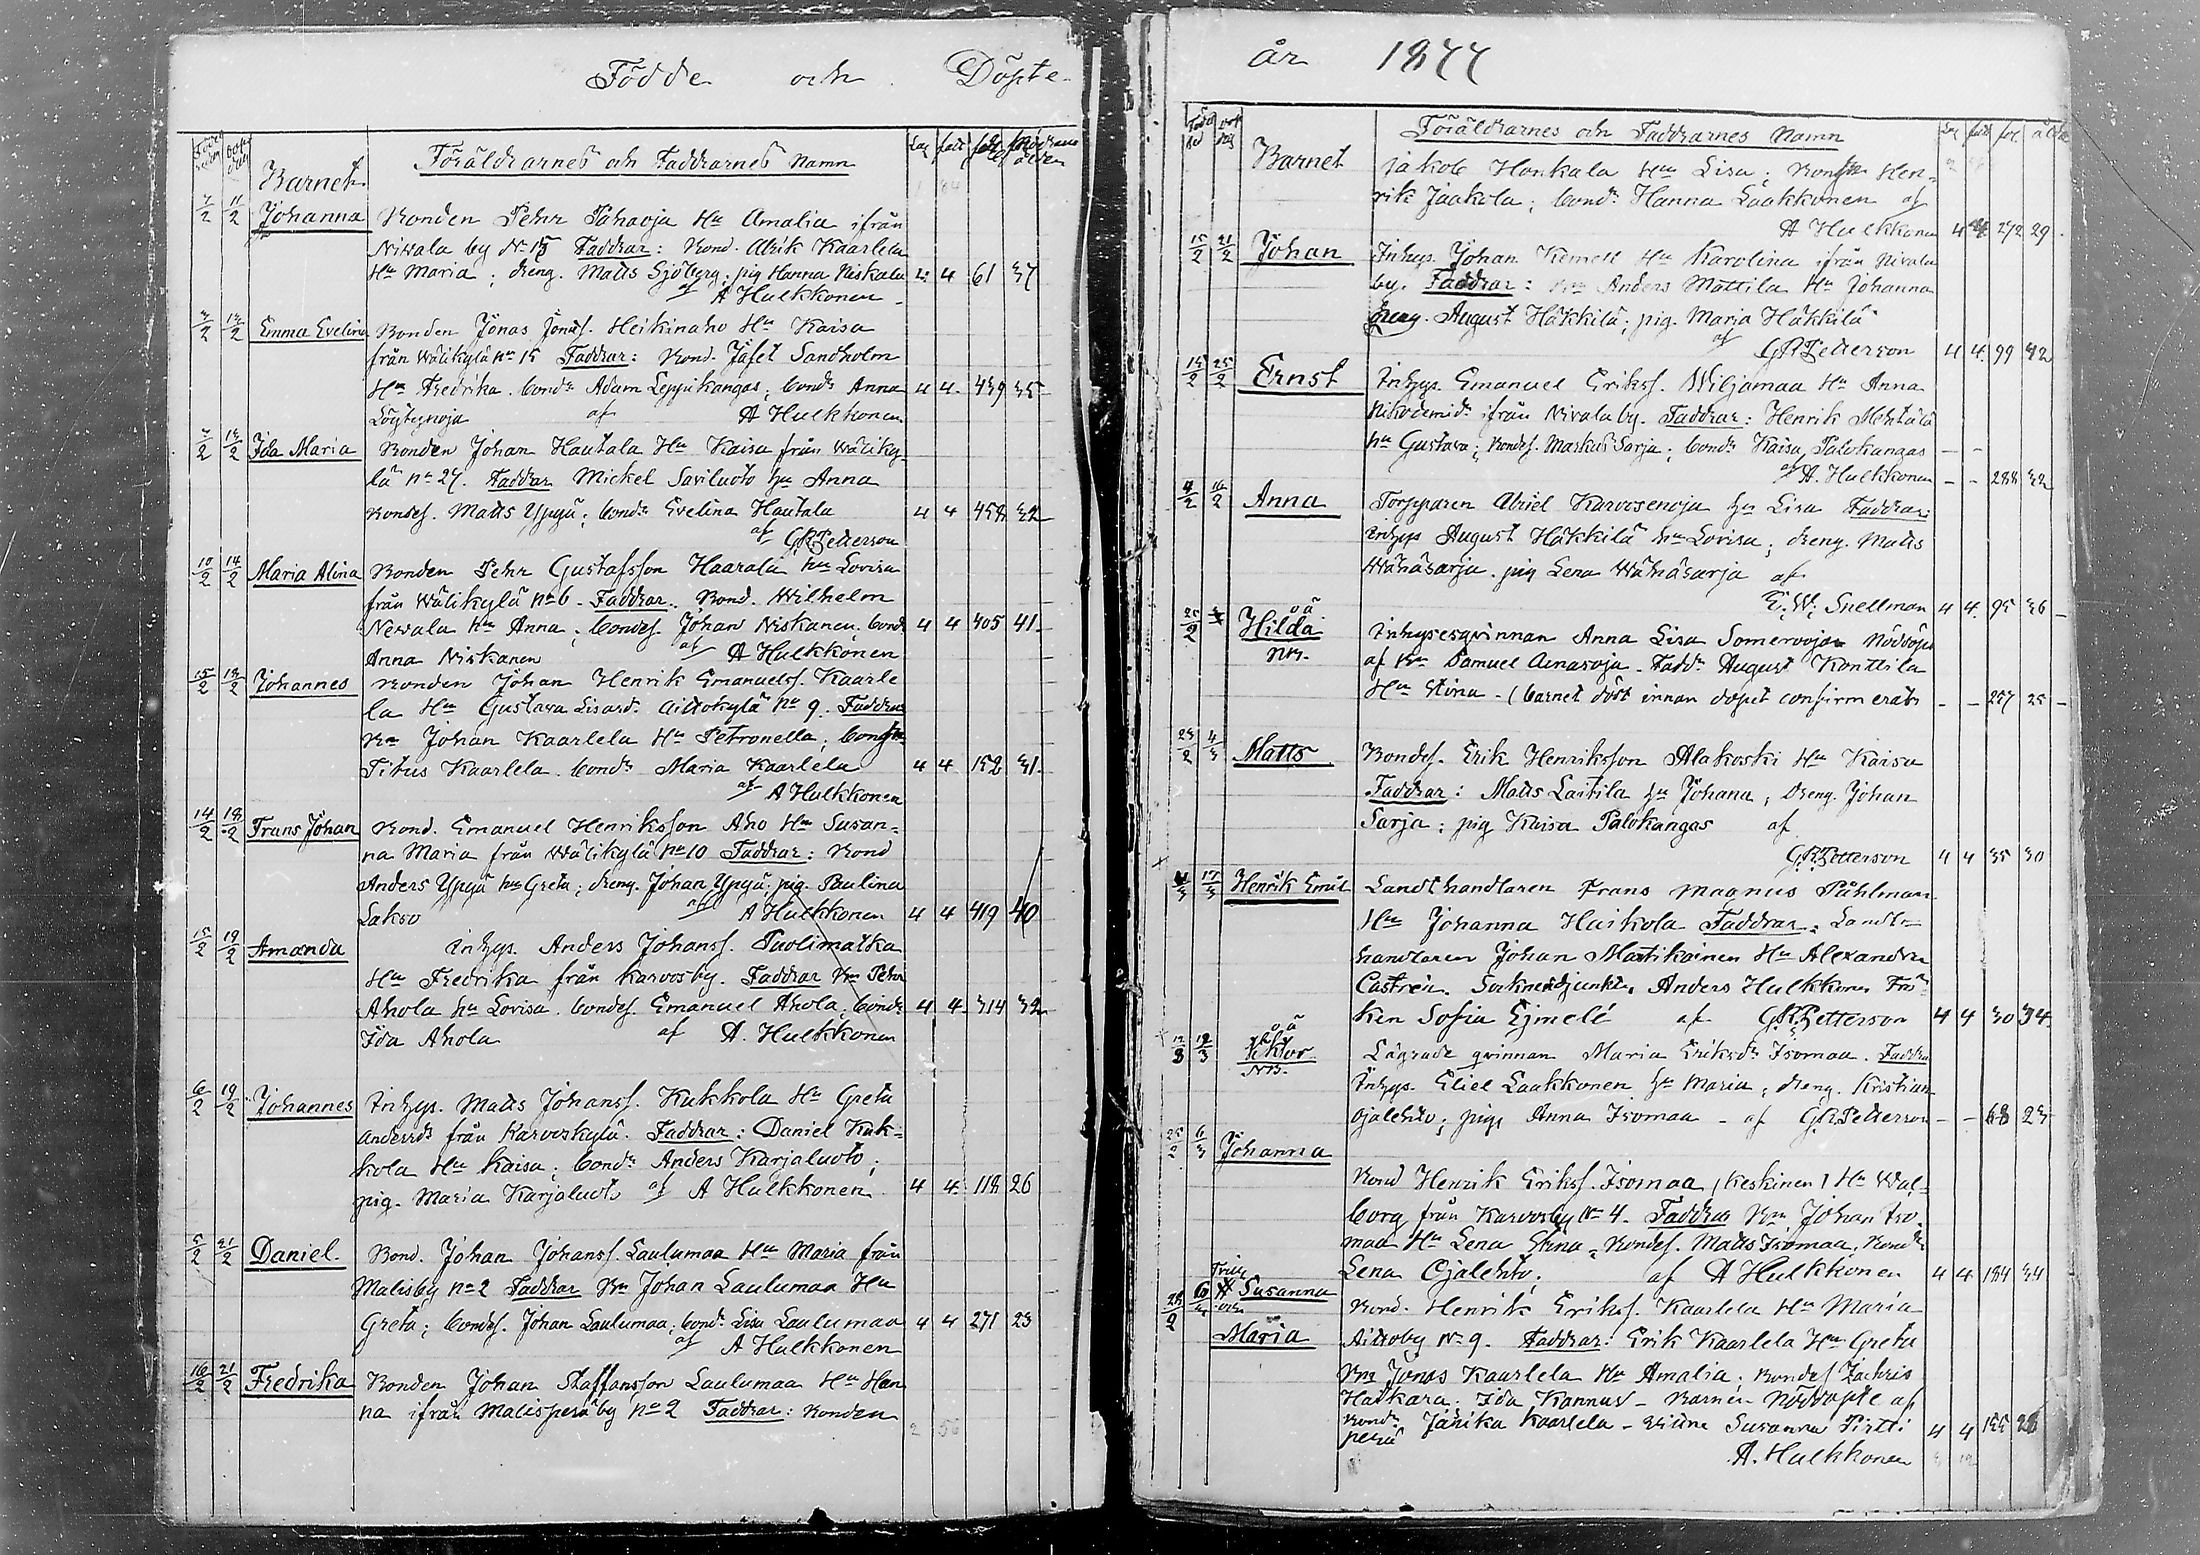 Födde och Döpte
Barnet Föräldrarnes och Faddrarnes Namn
7/2 11/2 Johanna Bonden Pehr Pahaoja Hu Amalia ifrån
Niwala by No 15 Faddrar: Bond. Abrik Kaarlela
Hu Maria; dreng. Matts Sjöberg; pig Hanna Niskala 2 4 61 37
af A Hulkkonen
Emma Evelina Bonden Jonas Jonas. Heikinaho Hu Kaisa
från Wälikylä no 15 Faddrar: Bond. Jafet Sandholm
Hu Fredrika. bonds Adam Leppikangas; bonds Anna 4 4 439 35
af A Hulkkonen
Ida Maria Bonden Johan Hautala Hu Kaisa från Wäliky-
lä no 27. Faddrar Mickel Saviluoto hu Anna
Bondes. Matts Ypyä; bonds Evelina Hautala 4 4 458 32
af G.R. Petterson
10/2 14/2 Maria Alina Bonden Pehr Gustafsson Haarala hu Lovisa
från Wälikylä no 6. Faddrar. Bond. Wilhelm
Newala hu Anna; bondes. Johan Niskanen; bonds 4 4 405 41
Anna Niskanen af A Hulkkonen
Johannes Bonden Johan Henrik Emanuelss. Kaarle
la Hu Gustava Lisasd. Aittokylä no 9. Faddrar
Bn Johan Kaarlela Hu Petronella;
Titus Kaarlela. bonds Maria Kaarlela 4 4 152 31
af A Hulkkonen
14/2 18/2 Frans Johan Bond. Emanuel Henriksson Aho Hu Susan-
na Maria från Wälikylä no 10 Faddrar: Bond
Anders Ypyä hu Greta; dreng. Johan Ypyä; pig. Paulina
Lakso af A Hulkkonen 4 4 419 40
15/2 19/2 Amanda Inhys. Anders Johanss. Puolimatka
Hu Fredrika från Karvosby. Faddrar Bn Pehr
Ahola hu Lovisa. bondes. Emanuel Ahola; bonds 4 4 314 32
Ida Ahola af A. Hulkkonen
6/2 19/2 Johannes Inhys. Matts Johanss. Kukkola Hu Greta
Andersds från Karvoskylä. Faddrar: Daniel Kuk-
kola Hu Kaisa; bonds Anders Karjaluoto;
pig. Maria Karjaluoto af A Hulkkonen 4 4 118 26
5/2 21/2 Daniel. Bond. Johan Johanss. Laulumaa Hu Maria från
Malisby no 2 Faddrar Bn Johan Laulumaa Hu
Greta; bondes. Johan Laulumaa; bonds Lisa Laulumaa 4 4 271 23
af A Hulkkonen
16/2 21/2 Fredrika Bonden Johan Staffansson Laulumaa Hu Han
na ifrån Malisperä by no 2 Faddrar: Bonden
år 1877
Barnet Föräldrarnes och Faddrarnes Namn
Jakob Honkala Hu Lisa; Hen-
rik Jaakola; bonds Hanna Laakkonen af
A Hulkkonen 4 272 29
15/2 21/2 Johan Inhys. Johan Hu Karolina ifrån Nivala
by. Faddrar: Bn Anders Mattila Hu Johanna
dreng. August Häkkilä; pig. Maria Häkkilä
af G.R. Petterson 4 4 99 42
25/2 Ernst Inhys. Emanuel Erikss. Wiljamaa Hu Anna
Nikodemid. ifrån Nivala by. Faddrar: Henrik Mehtälä
hu Gustava; Bondes. Markus Sarja; bonds Kaisa Palokangas
af A. Hulkkonen - - 288 32
Anna Torpparen Abriel Karvosenoja hu Lisa Faddrar:
Inhys August Häkkilä hu Lovisa; dreng. Matts
Wähäsarja. pig Lena Wähäsarja af
E. W. Snellman 4 4 95 36
oä Hilda Inhysesqvinnan Anna Lisa Someroja Nöddöpt
NB. af Bn Samuel Ainasoja. Fadd. August Konttila
Hu Stina - (barnet dött innan dopet confirmerats - - 257 25
4/3 Matts Bondes. Erik Henriksson Alakoski Hu Kaisa
Faddrar: Matts Laitila hu Johana; dreng. Johan
Sarja; pig Kaisa Palokangas af
G.R. Petterson 4 4 35 30
17/3 Henrik Emil Landthandlaren Frans Magnus Påhlman
Hu Johanna Haikola Faddrar. Landt-
handlaren Johan Martikainen Hu Alexandra
Castrén. Sockneadjunkten Anders Hulkkonen Frö
ken Sofia Ejmelé af G.R. Petterson 4 4 30 34
oä Viktor Lägrade qvinnan Maria Eriksd. Isomaa. Faddrar
NB. Inhys. Eliel Laakkonen hu Maria; dreng. Kristian
Ojalehto; piga Anna Isomaa - af G.R. Petterson - - 68 23
25/2 6/3 Johanna
Bond Henrik Erikss. Isomaa (Keskinen) Hu Wal-
borg från Karvosby no 4. Faddrar Bn Johan Iso-
maa Hu Lena Stina. Bondes. Matts Isomaa, Bonds
Lena Ojalehto. af A Hulkkonen 4 4 184 34
Susanna Bond. Henrik Erikss. Kaarlela Hu Maria
Maria Aittoby no 9. Faddrar: Erik Kaarlela Hu Greta
Bn Jonas Kaarlela Hu Amalia; Bondes Zachris
Haikara; Ida Kannus - Barnen Nöddöpte af
Bonds Kaarlela - Susanna Pirtti
perä 4 4 155
A. Hulkkonen